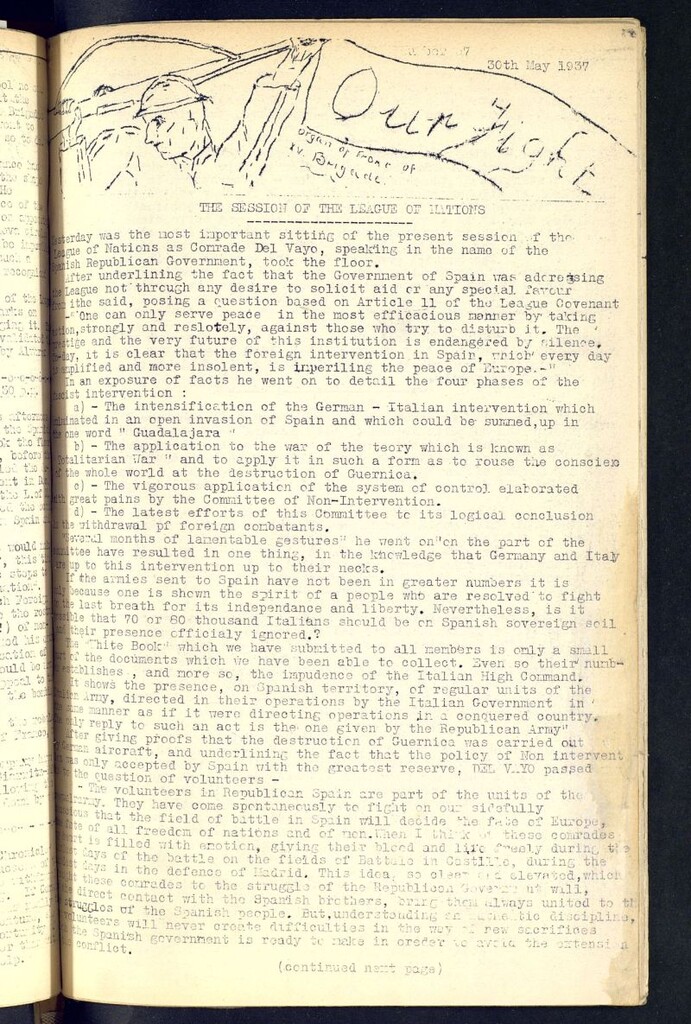 30th May 1937
Our Fight
Organ of Front of
XV. Brigade
THE SESSION OF THE LEAGUE OF NATIONS
sterday was the most important sitting of the present session of the
ague of Nations as Comrade Del Vayo, speaking in the name of the
nish Republican Government, took the floor.
After underlining the fact that the Government of Spain was adressing
League not through any desire to solicit aid or any special favour
he said, posing a question based on Article 11 of the League Covenant
-"One can only serve peace in the most efficacious manner by taking
tion,strongly and reslotely, against those who try to disturb it. The
stige and the very future of this institution is endangered by silence.
-day, it is clear that the foreign intervention in Spain, which every day
amplified and more insolent, is imperiling the peace of Europe.-"
In an exposure of facts he went on to detail the four phases of the
cist intervention :
a) - The intensification of the German - Italian intervention which
minated in an open invasion of Spain and which could be summed,up in
one word " Guadalajara "
b) - The application to the war of the teory which is known as
otalitarian War " and to apply it in such a form as to rouse the conscien
f the whole world at the destruction of Guernica.
c) - The vigorous application of the system of control elaborated
th great pains by the Committee of Non-Intervention.
d) - The latest efforts of this Committee to its logical conclusion
the withdrawal pf foreign combatants.
"Several months of lamentable gestures" he went on"on the part of the
mmittee have resulted in one thing, in the knowledge that Germany and Italy
re up to this intervention up to their necks.
If the armies sent to Spain have not been in greater numbers it is
ly because one is shown the spirit of a people who are resolved to fight
the last breath for its independence and liberty. Nevertheless, is it
sible that 70 or 80 thousand Italians should be on Spanish sovereign soil
their presence officialy ignored.?
The "hite Book" which we have submitted to all members is only a small
rt of the documents which we have been able to collect. Even so their numb-
establishes , and more so, the impudence of the Italian High Command.
It shows the presence, on Spanish territory, of regular units of the
Army, directed in their operations by the Italian Government in
same manner as if it were directing operations in a conquered country.
only reply to such an act is the one given by the Republican Army"
After giving proofs that the destruction of Guernica was carried out
rman aircraft, and underlining the fact that the policy of Non intervent
was only accepted by Spain with the greatest reserve, DEL VAYO passed
the question of volunteers -
- The volunteers in Republican Spain are part of the units of the
army. They have come spontaneously to fight on our sidefully
cious that the field of battle in Spain will decide the fate of Europe,
te of all freedom of nations and of men.When I think of these comrades
rt is filled with emotion, giving their blood and life freely during the
days of the battle on the fields of Battale in Castille, during the
days in the defence of Madrid. This idea, so clear and elevated,which
these comrades to the struggle of the Republican Government will,
direct contact with the Spanish brothers, bring them always united to th
truggles of the Spanish people. But,understanding discipline,
lunteers will never create difficulties in the way of new sacrifices
the Spanish government is ready to make in oreder to avoid the extension
conflict.
(continued next page)